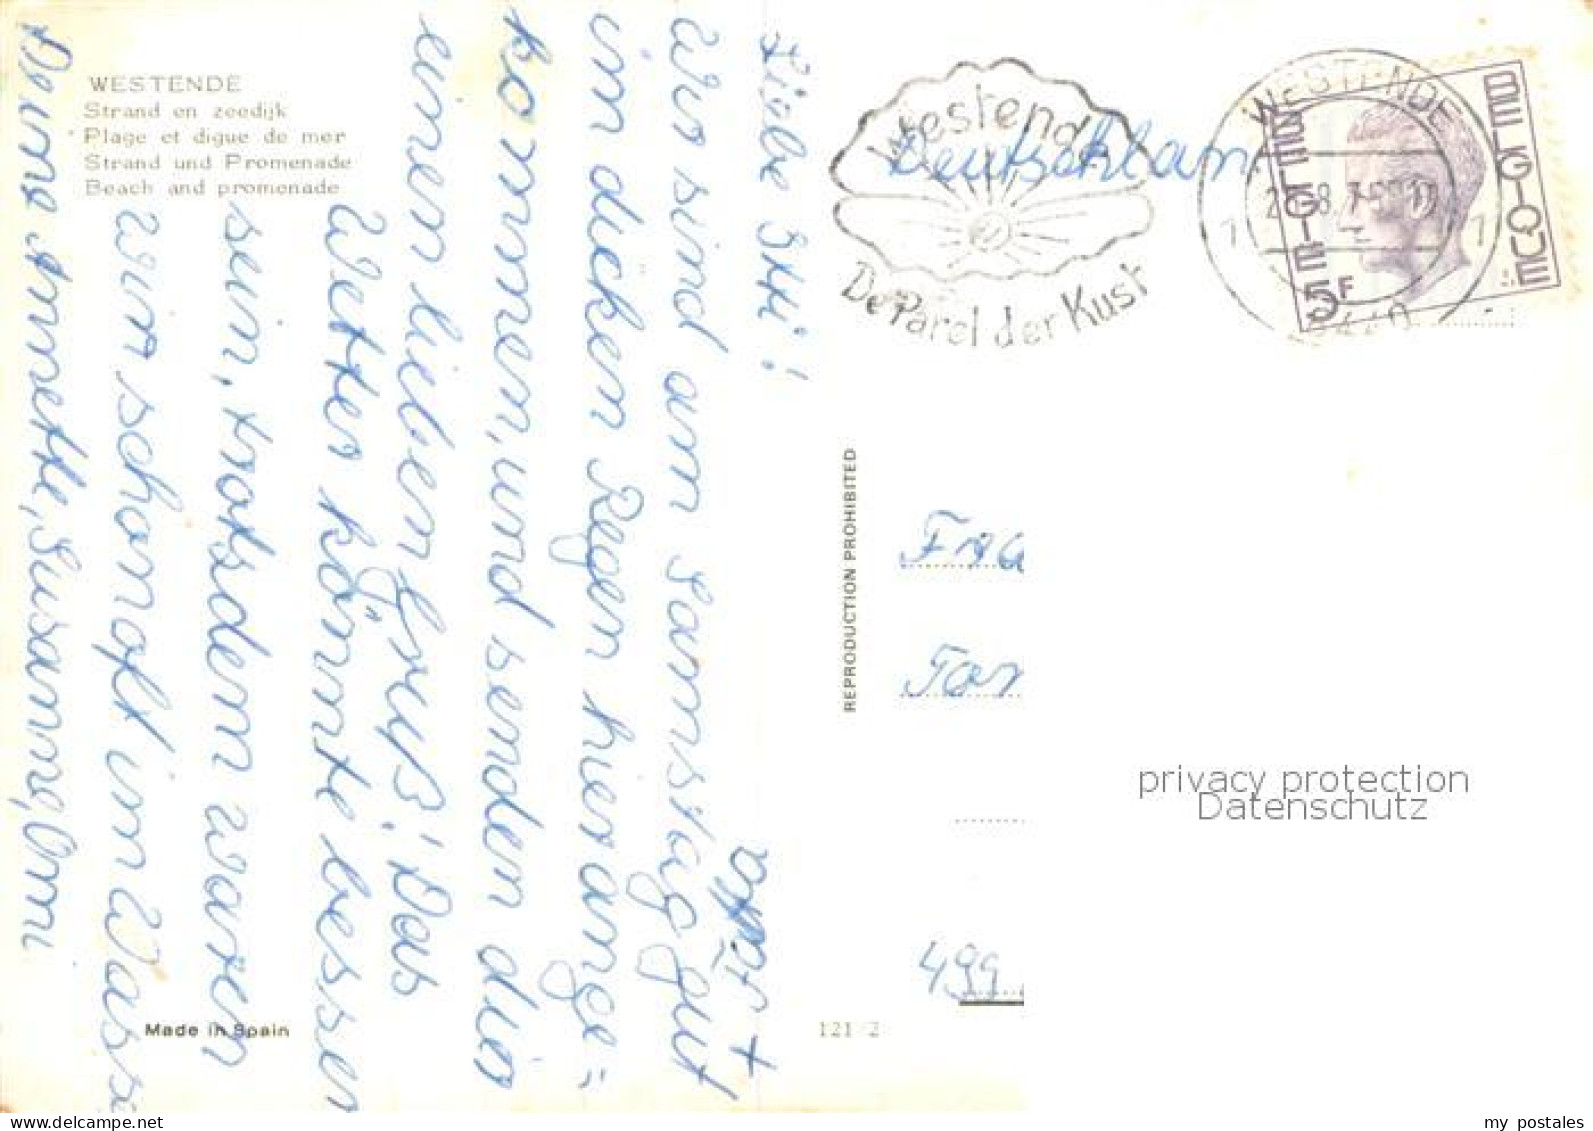 WESTENDE
Strand en zeedijk
Plage et digue de mer
Strand und Promenade
Beach and promenade
Liebe Itti!
Wir sind am Samstag gut
im dicken Regen hier ange=
kommen, und senden dir
einen lieben Gruß! Das
Wetter könnte besser
sein, trotzdem waren
wir schon oft im Wass
Deine Annette, Susanne, Omi
+
Made in Spain
121 2
REPRODUCTION PROHIBITED
Westende
De Parel der Kust
Deutschlan
WESTENDE
BELGIE 5F
BELGIQUE
Frau
499
privacy protection
Datenschutz
my postales